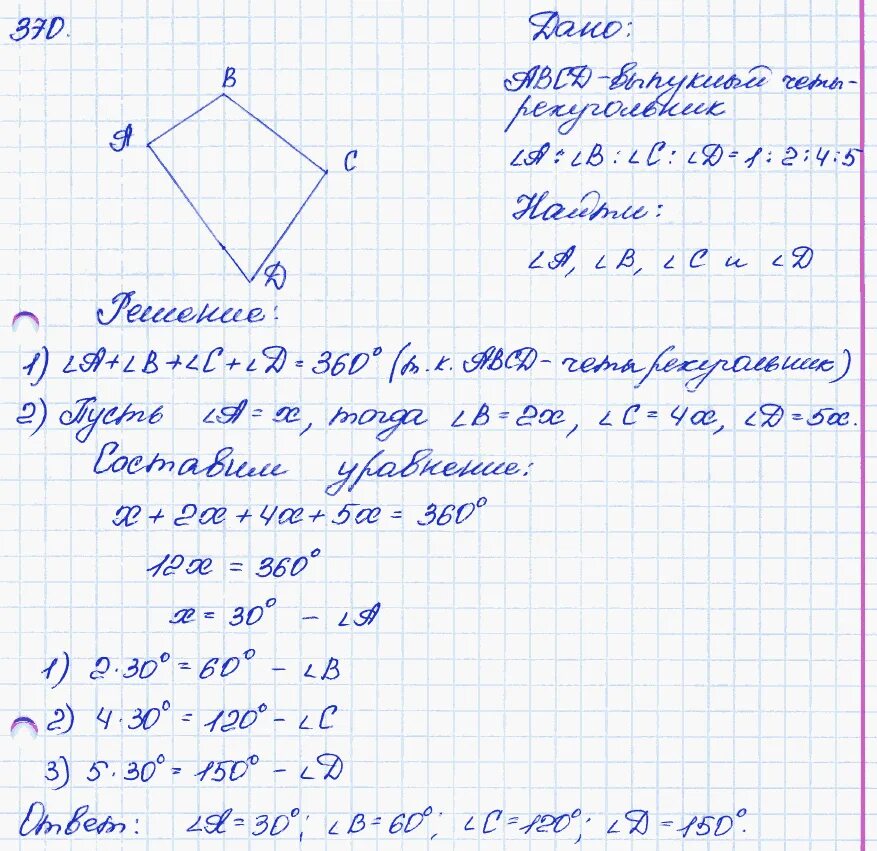 370.
Дано:
ABCD - выпуклый четы-
рехугольник
∠A : ∠B : ∠C : ∠D = 1 : 2 : 4 : 5
Найти:
∠A, ∠B, ∠C и ∠D
B
A
C
D
Решение:
1) ∠A + ∠B + ∠C + ∠D = 360° (т.к. ABCD - четырехугольник)
2) Пусть ∠A = x, тогда ∠B = 2x, ∠C = 4x, ∠D = 5x.
Составим уравнение:
x + 2x + 4x + 5x = 360°
12x = 360°
x = 30° - ∠A
1) 2·30° = 60° - ∠B
2) 4·30° = 120° - ∠C
3) 5·30° = 150° - ∠D
Ответ: ∠A = 30°; ∠B = 60°; ∠C = 120°; ∠D = 150°.